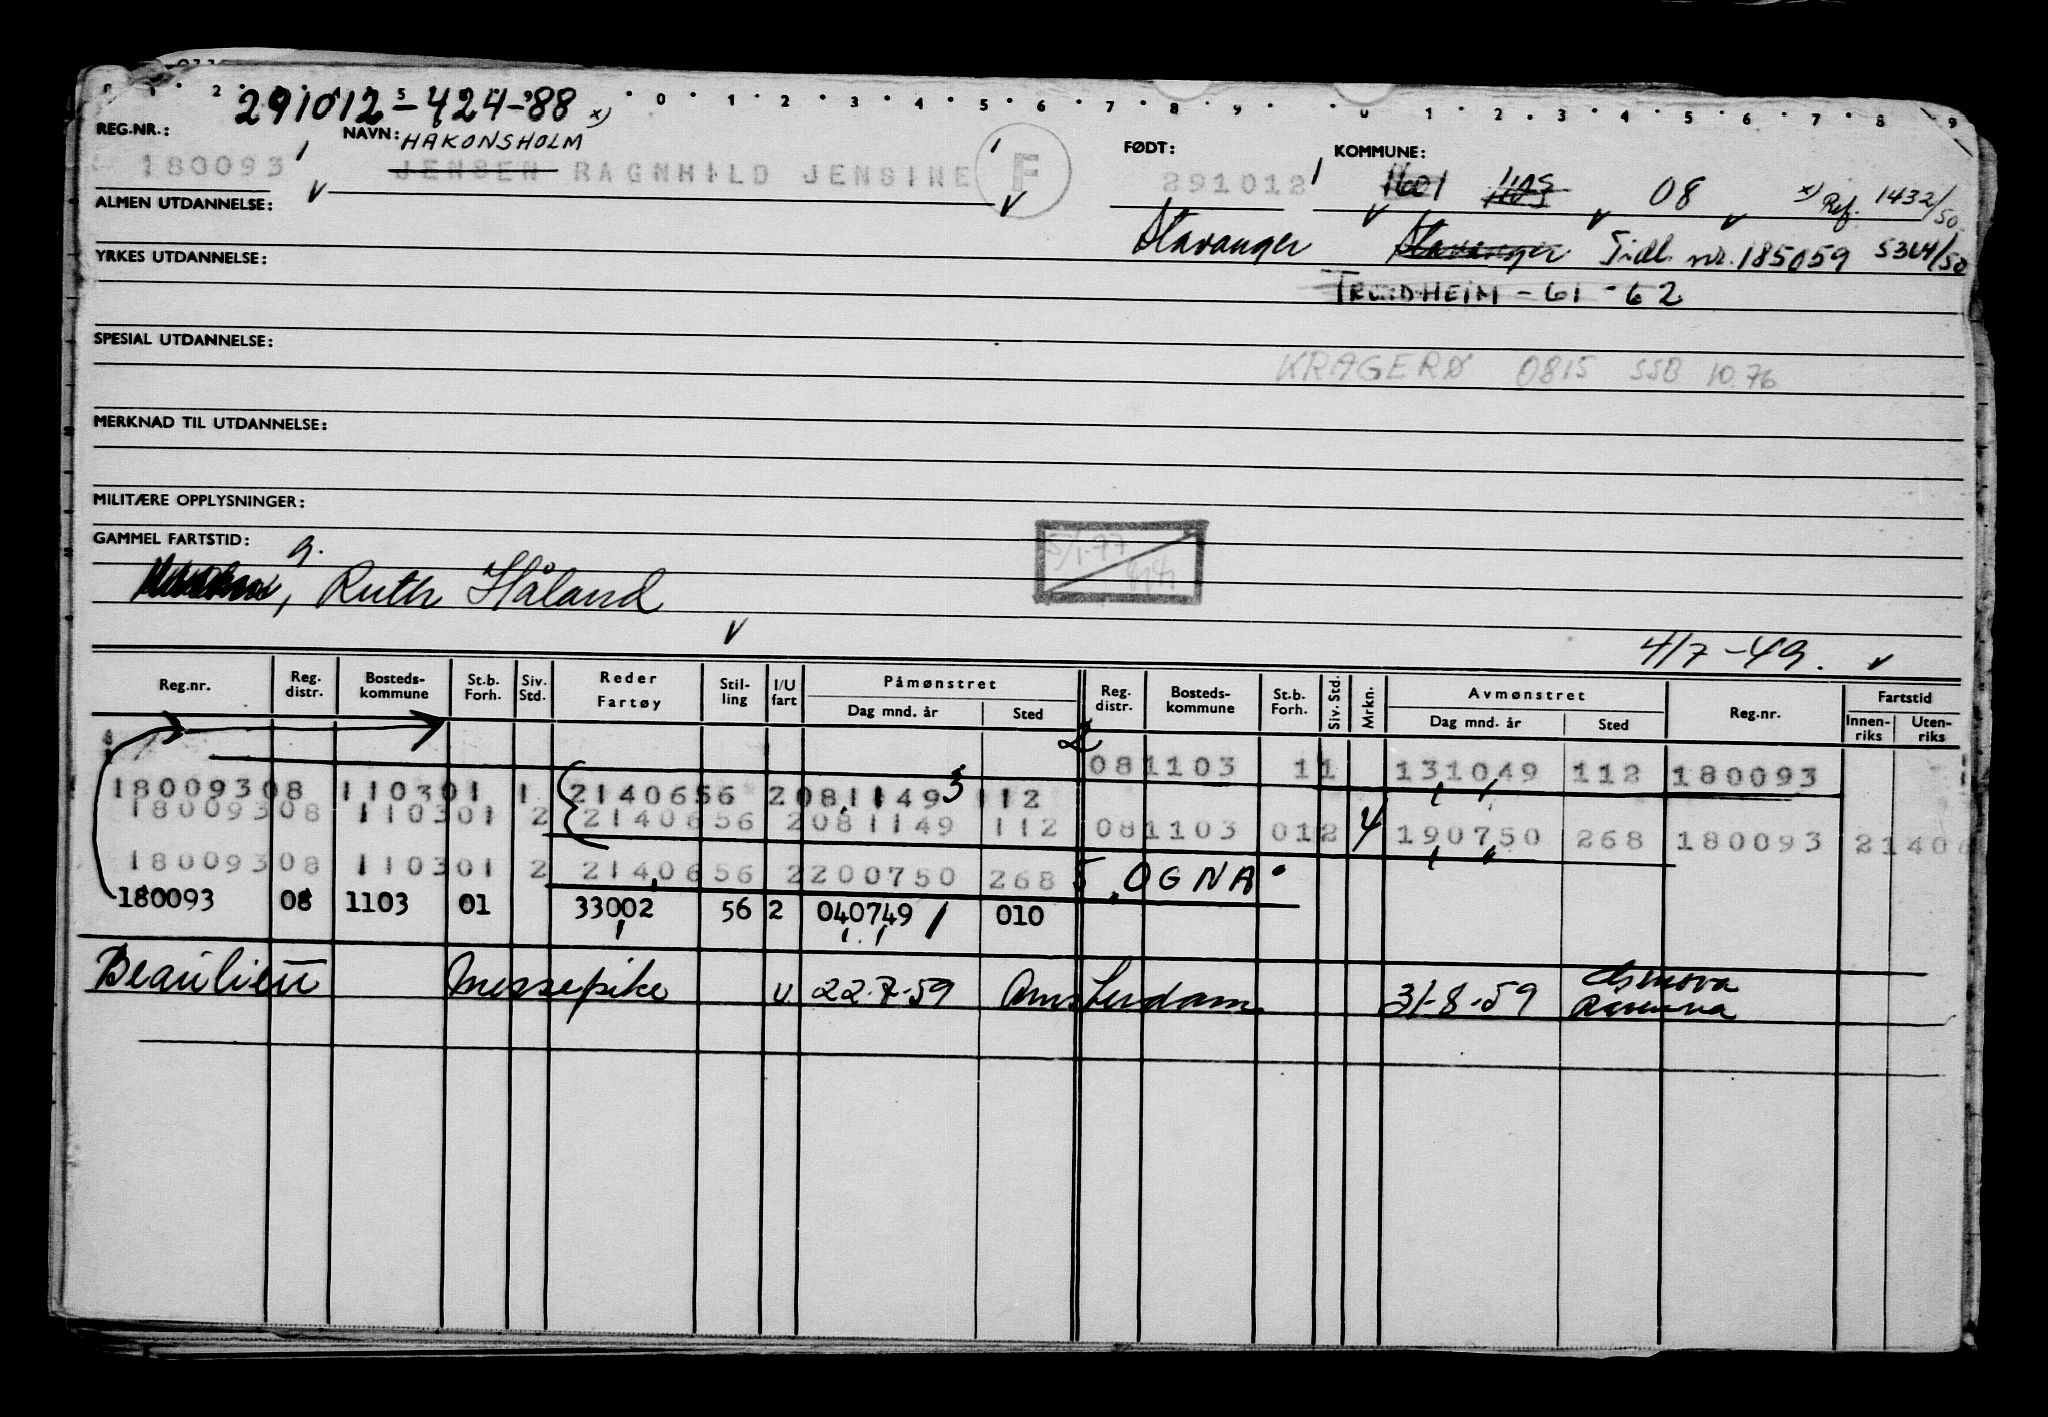 291012-424-88 x)
REG.NR.: NAVN: HAKONSHOLM FØDT: KOMMUNE:
180093 JENSEN RAGNHILD JENSINE F 291012 1601 08 x) Ref. 1432/50
ALMEN UTDANNELSE:
Stavanger Stavanger Tidl. nr. 185059 5364/50
YRKES UTDANNELSE:
TRONDHEIM - 61 - 62
SPESIAL UTDANNELSE:
KRAGERØ 0815 SSB 10.76
MERKNAD TIL UTDANNELSE:
MILITÆRE OPPLYSNINGER:
GAMMEL FARTSTID:
g.
5/1-77
, Ruth Håland
4/7-49.
Reg.nr. Reg. distr. Bosteds-kommune St.b. Forh. Siv. Std. Reder Fartøy Stil-ling I/U fart Påmønstret Dag mnd. år Sted Reg. distr. Bosteds-kommune St.b. Forh. Siv. Std. Mrkn. Avmønstret Dag mnd. år Sted Reg.nr. Fartstid Innen-riks Uten-riks
081103 11 131049 112 180093
18009308 110301 1 2140656 2081149 3 112
18009308 110301 2 2140656 2081149 112 081103 012 4 190750 268 180093 2140
18009308 110301 2 2140656 2200750 268 5 OGNA
180093 08 1103 01 33002 56 2 040749 010
Beaulieu messepike u 22-7-59 Amsterdam 31-8-59 Ravenna